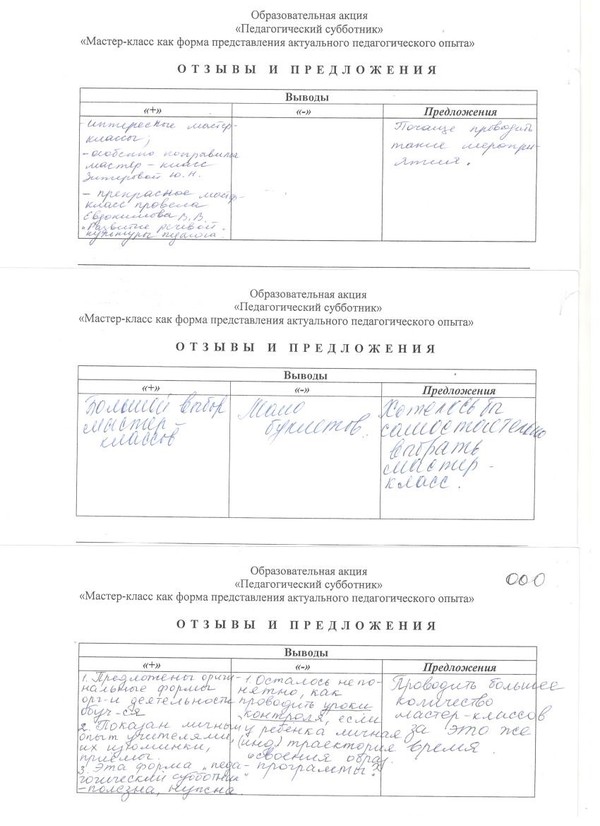 Образовательная акция
«Педагогический субботник»
«Мастер-класс как форма представления актуального педагогического опыта»
ОТЗЫВЫ И ПРЕДЛОЖЕНИЯ
Выводы
«+»
«-»
Предложения
- интересные мастер-
классы,
- особенно понравился
мастер-класс
Ю.Н.
- прекрасное мастер-
класс провела
Евдокимова В.В.
"Развитие речевой
культуры педагога
Почаще проводить
такие меропри-
ятия.
Образовательная акция
«Педагогический субботник»
«Мастер-класс как форма представления актуального педагогического опыта»
ОТЗЫВЫ И ПРЕДЛОЖЕНИЯ
Выводы
«+»
«-»
Предложения
Большой выбор
мастер-
классов
Мало
буклетов.
Хотелось бы
самостоятельно
выбрать
мастер-
класс.
Образовательная акция
«Педагогический субботник»
«Мастер-класс как форма представления актуального педагогического опыта»
ООО
ОТЗЫВЫ И ПРЕДЛОЖЕНИЯ
Выводы
«+»
«-»
Предложения
1. Предложены ориги-
нальные формы
орг-и деятельности
обуч-ся
2. Показан личный
опыт учителями,
их изюминки,
приемы.
3. Эта форма "педа-
гогический субботник"
- полезна, нужна.
1. Осталось непо-
нятно, как
проводить уроки
контроля, если
у ребенка личная
(инд) траектория
освения образ.
программы?
Проводить большее
количество
мастер-классов
за это же
время.